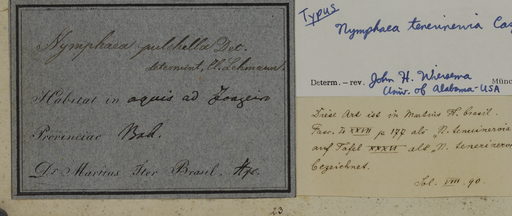 Nymphaea pulchella Dec.
determent, Cl. Lehmann.
Habitat in aquis ad Joazeiro
Provinciae Bah.
Dr Martius Iter Brasil.
Typus
Nymphaea tenerinervia Cas
Determ. – rev. John H. Wiersema
Univ. of Alabama-USA
Münc
Diese Art ist in Martius Fl. brasil.
Fasc. 77 XXVII p 177 als „N. tenuinervia
auf Tafel XXXVI als „N. tenerinervia
bezeichnet.
Sol. VIII. 90.
23